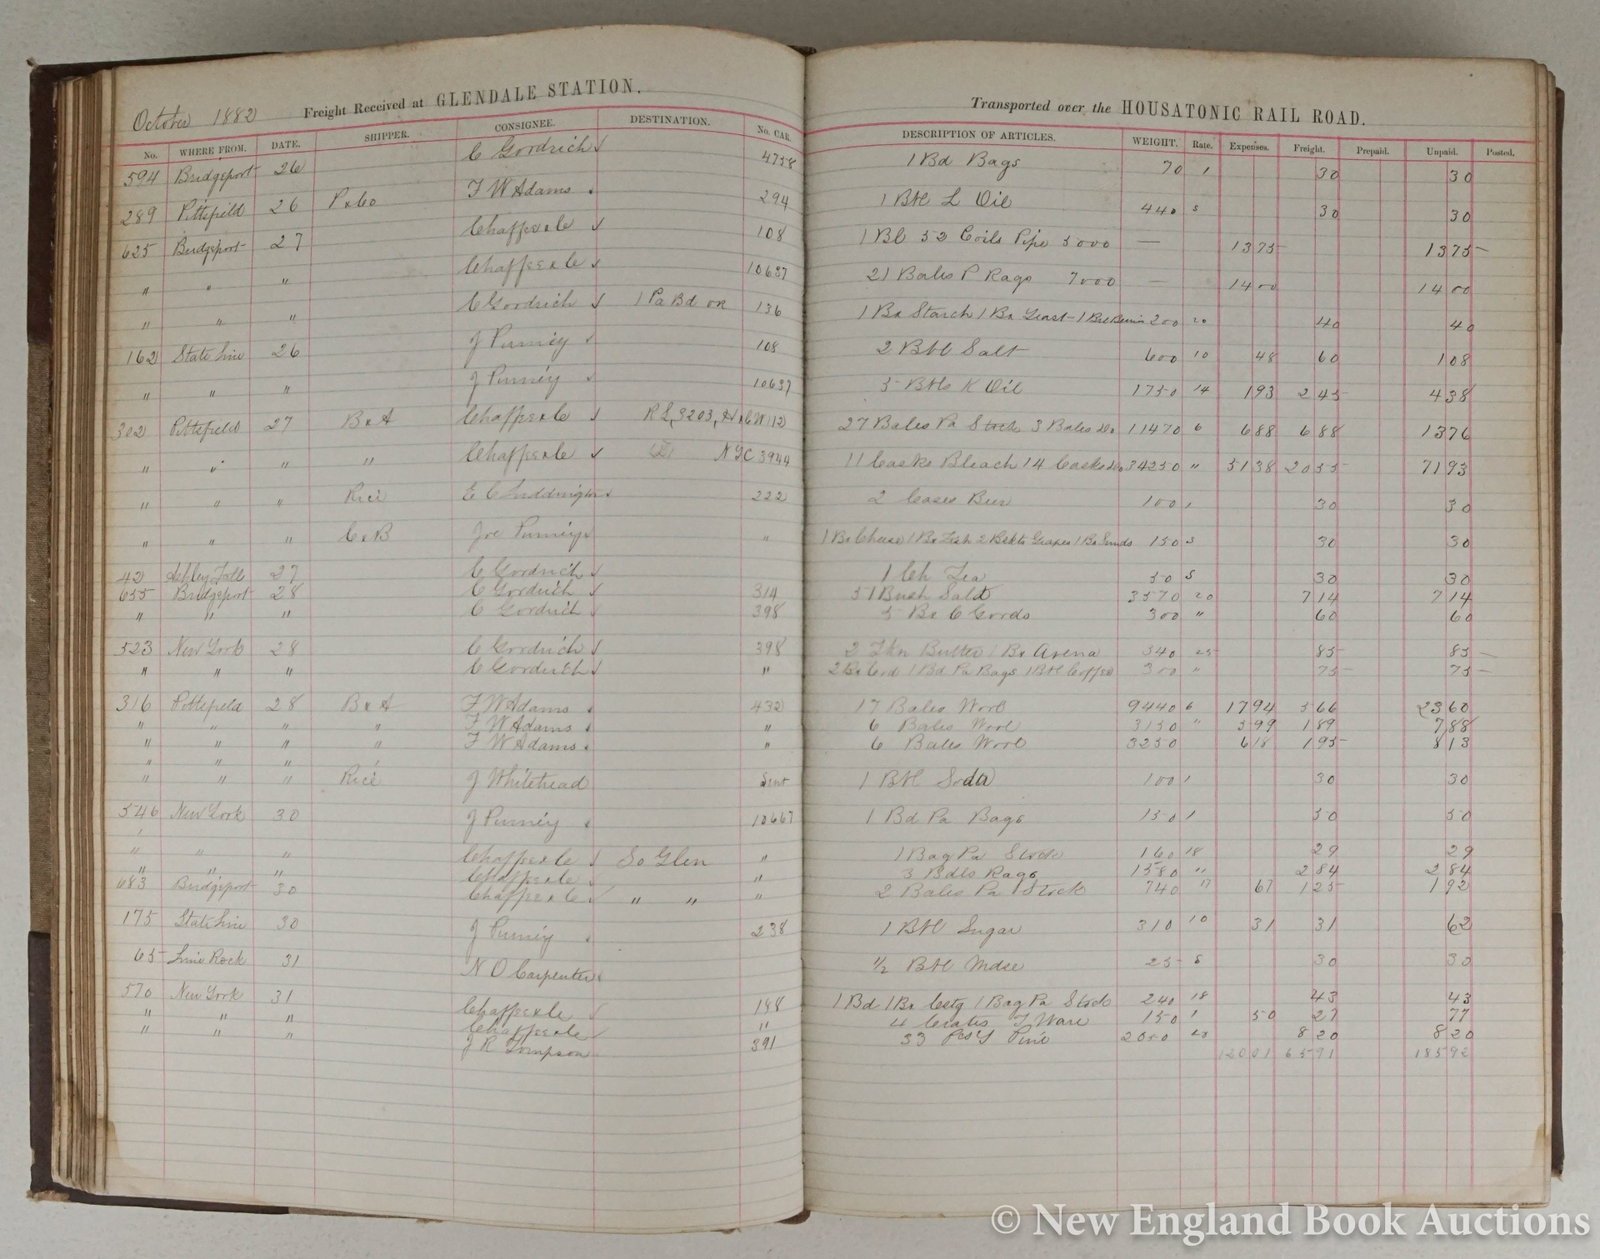 October 1882 Freight Received at GLENDALE STATION. Transported over the HOUSATONIC RAIL ROAD.
No. WHERE FROM. DATE. SHIPPER. CONSIGNEE. DESTINATION. No. CAR. DESCRIPTION OF ARTICLES. WEIGHT. Rate. Expenses. Freight. Prepaid. Unpaid. Posted.
594 Bridgeport 26 C Goodrich 4758 1 Bd Bags 70 1 30 30
289 Pittsfield 26 P&Co F W Adams 294 1 Bbl L Oil 440 8 30 30
625 Bridgeport 27 108 1 Bl 52 Coils Pipe 5000 — 1375 1375
" " " 10637 21 Bales P Rags 7000 — 1400 1400
" " " C Goodrich 136 1 Bx Starch 1 Bx Yeast 200 20 40 40
162 State Line 26 J Purney 108 2 Bbl Salt 600 10 48 60 108
" " " J Purney 10637 5 Bbls K Oil 1750 14 193 245 438
302 Pittsfield 27 B&A 27 Bales Pa Stock 3 Bales Do 11470 6 688 688 1376
" " " " NYC 3944 11 Casks Bleach 14 Casks Do 34250 " 5138 2055 7193
" " " Rice 222 2 Cases 100 1 30 30
" " " C&B Joe Purney " 150 30 30
42 Ashley Falls 27 C Goodrich 1 Ch Tea 50 8 30 30
655 Bridgeport 28 C Goodrich 314 51 Bush Salt 3570 20 714 714
" " " C Goodrich 398 5 Bx C Goods 300 " 60 60
523 New York 28 C Goodrich 398 2 Tkn Butter 1 Bx 340 25 85 85
" " " C Goodrich " 1 Bd Pa Bags 1 Bbl Coffee 300 " 75 75
316 Pittsfield 28 B&A F W Adams 432 17 Bales Wool 9440 6 1794 566 2360
" " " " F W Adams " 6 Bales Wool 3150 " 599 189 788
" " " " F W Adams " 6 Bales Wool 3250 618 195 813
" " " "
" " " Rice J Whitehead 1 Bbl Soda 100 1 30 30
546 New York 30 J Purney 10667 1 Bd Pa Bags 150 1 50 50
" " " So Glen " 1 Bag Pa Stock 160 18 29 29
" " " " 3 Bdls Rags 1580 " 284 284
683 Bridgeport 30 " " " 2 Bales Pa Stock 740 17 67 125 192
175 State Line 30 J Purney 238 1 Bbl Sugar 310 10 31 31 62
65 Lime Rock 31 N O Carpenter ½ Bbl Mdse 25 8 30 30
570 New York 31 198 1 Bd 1 Bx 1 Bag Pa Stock 240 18 43 43
" " " " 4 Crates T Ware 150 1 50 27 77
" " " J R Tompson 391 33 Pine 2050 40 820 820
12001 6591 18592
© New England Book Auctions